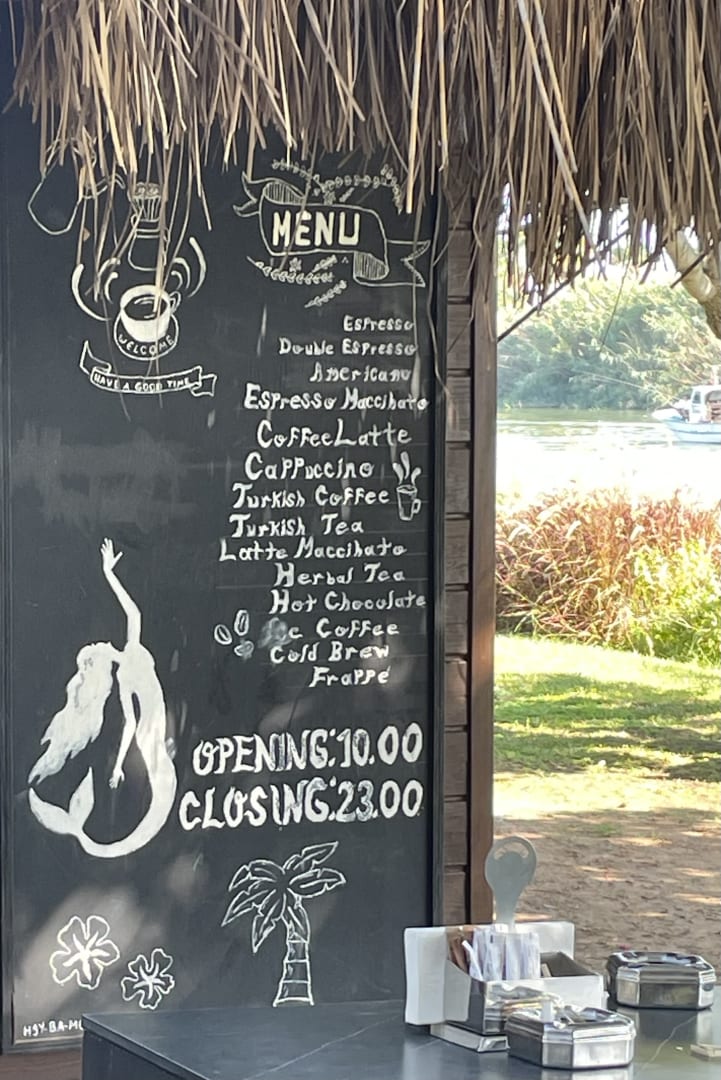 MENU
WELCOME
HAVE A GOOD TIME
Espresso
Double Espresso
Americano
Espresso Maccihato
Coffee Latte
Cappuccino
Turkish Coffee
Turkish Tea
Latte Maccihato
Herbal Tea
Hot Chocolate
Coffee
Cold Brew
Frappe
OPENING:10.00
CLOSING:23.00